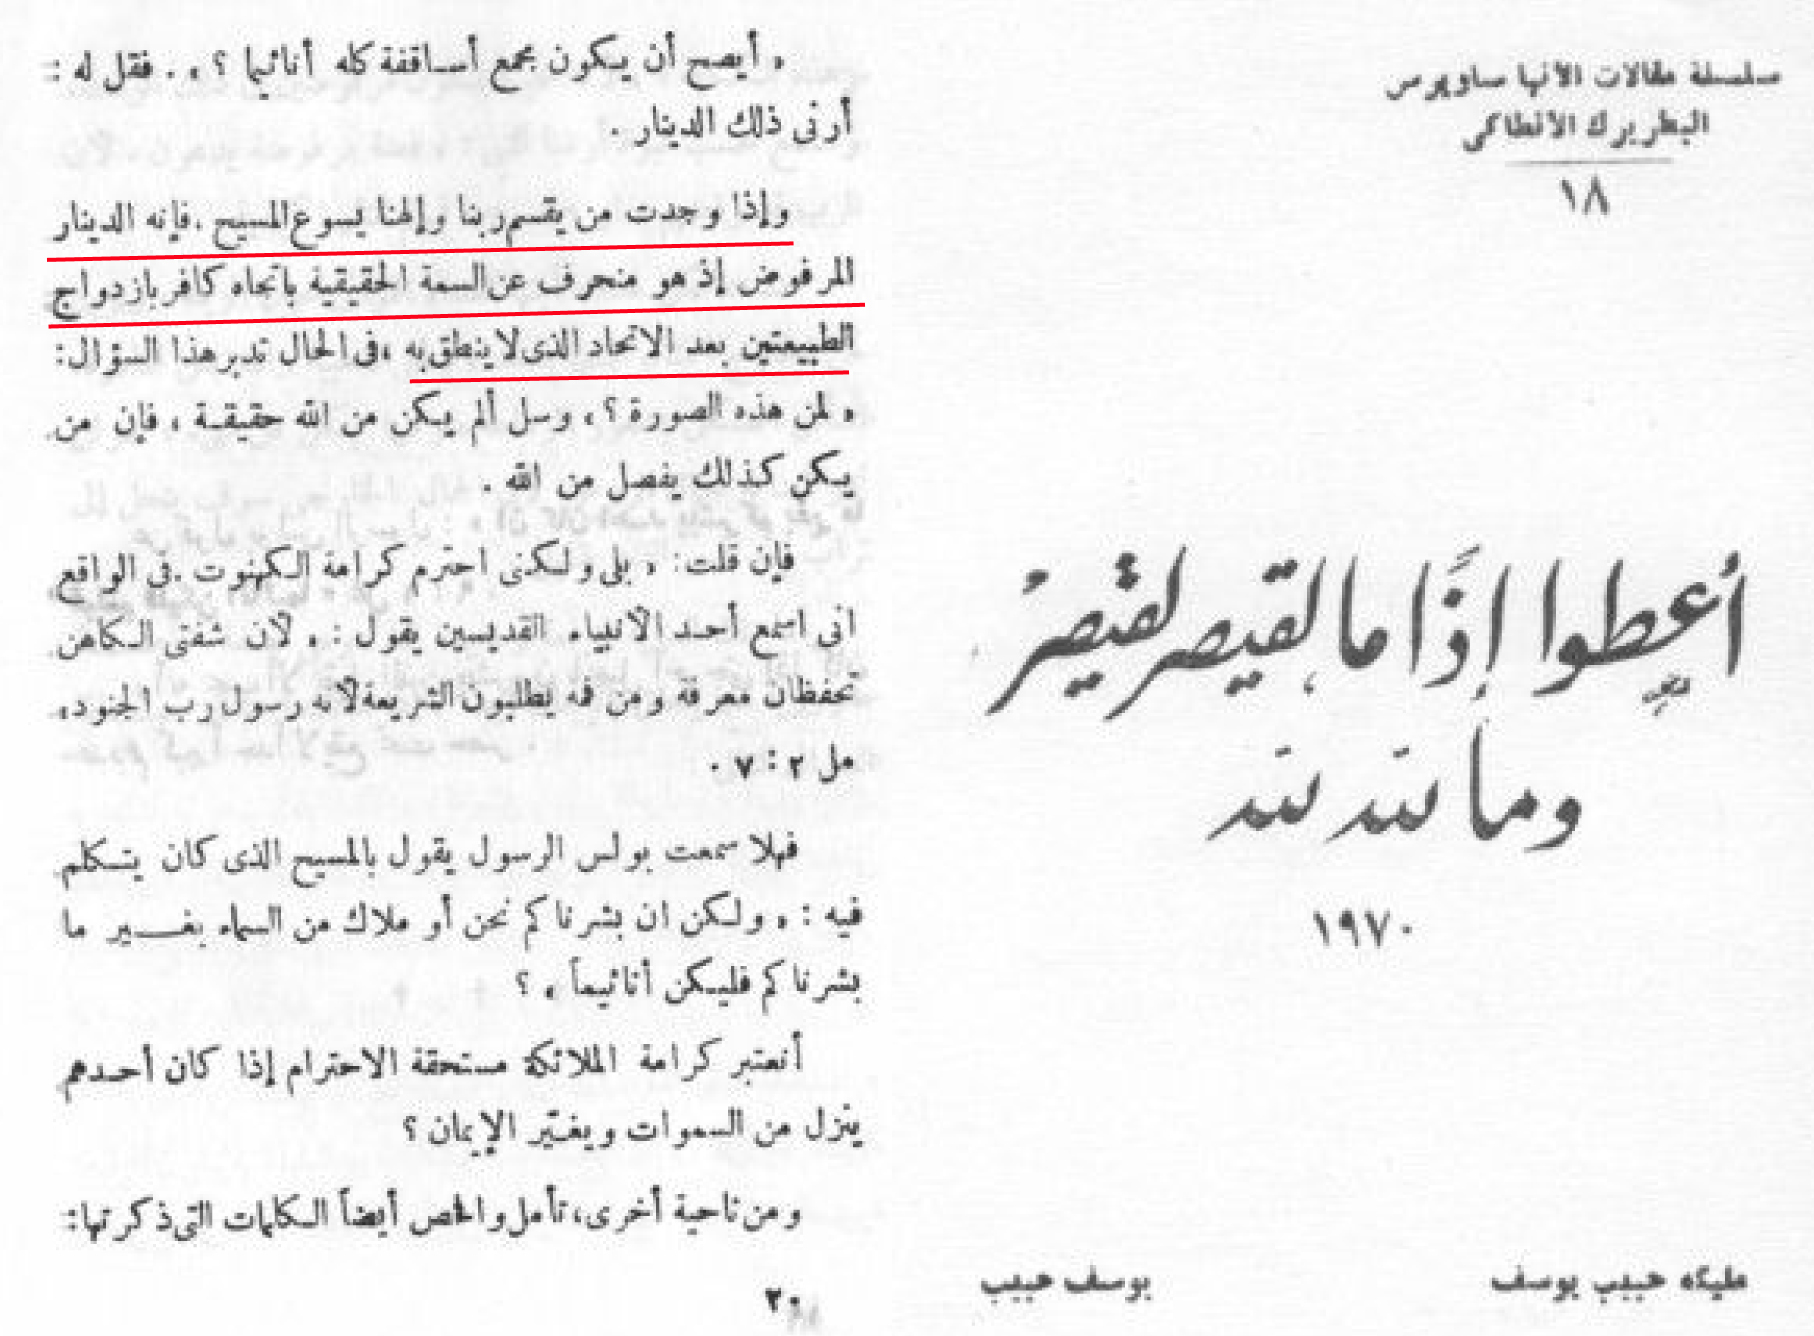 سلسلة مقالات الأنبا ساويرس
البطريرك الأنطاكى
١٨
أعطوا إذًا ما لقيصر لقيصر
وما لله لله
١٩٧٠
مليكه حبيب يوسف
يوسف حبيب
« أيصح أن يكون مجمع أساقفة كله أناثيما ؟ » . فقل له :
أرنى ذلك الدينار .
وإذا وجدت من يقسم ربنا وإلهنا يسوع المسيح ، فإنه الدينار
المرفوض إذ هو منحرف عن السمة الحقيقية باتجاه كافر بازدواج
الطبيعتين بعد الاتحاد الذى لا ينطق به ، فى الحال تدبر هذا السؤال :
« لمن هذه الصورة ؟ » وسل ألم يكن من الله حقيقة ، فإن من
يكن كذلك يفصل من الله .
فإن قلت : « بلى ولكنى احترم كرامة الكهنوت . فى الواقع
انى اسمع أحد الأنبياء القديسين يقول : « لأن شفتى الكاهن
تحفظان معرفة ومن فمه يطلبون الشريعة لأنه رسول رب الجنود »
مل ٢ : ٧ .
فهلا سمعت بولس الرسول يقول بالمسيح الذى كان يتكلم
فيه : « ولكن ان بشرناكم نحن أو ملاك من السماء بغير ما
بشرناكم فليكن أناثيماً » ؟
أنعتبر كرامة الملائكة مستحقة الاحترام إذا كان أحدهم
ينزل من السموات ويغيّر الإيمان ؟
ومن ناحية أخرى ، تأمل وافحص أيضاً الكلمات التى ذكرتها :
٢٠